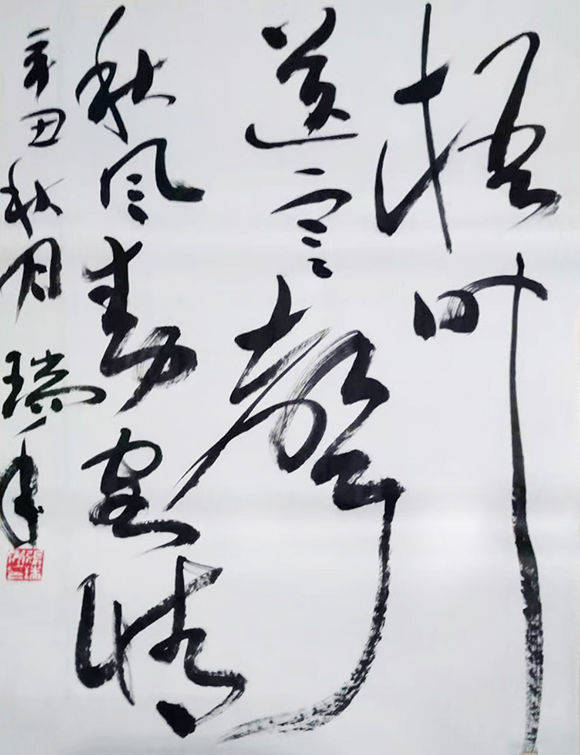 梧叶
送寒聲
秋风動客情
辛丑秋月 瑞年